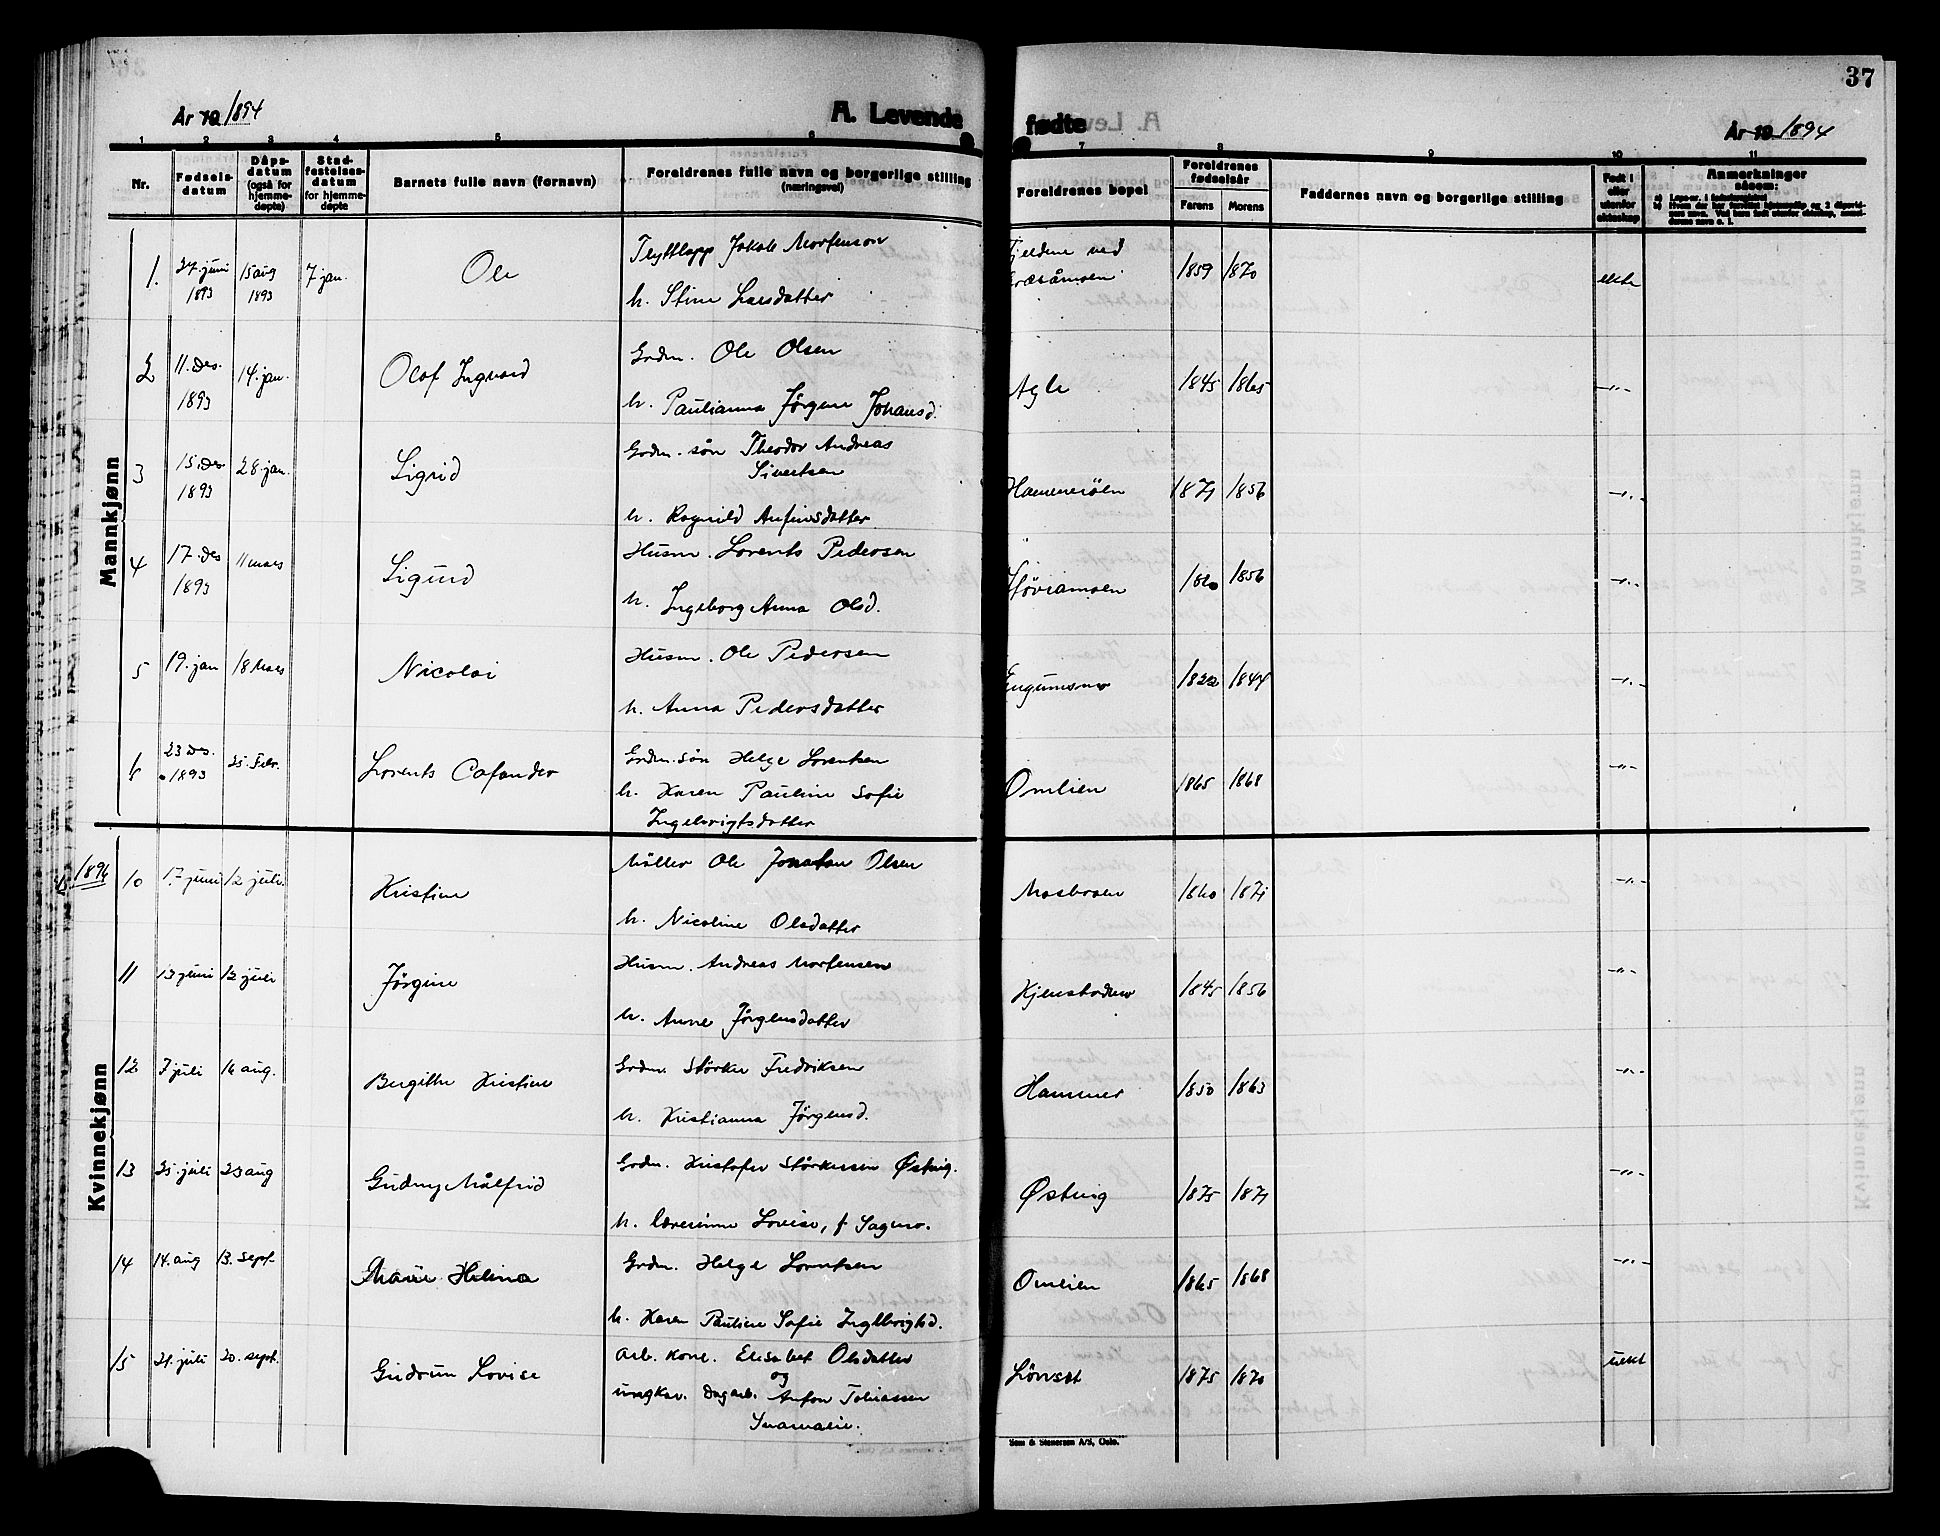 37
År 19 1894
A. Levende
fødte
År 19 1894
1 2 3 4 5 6 7 8 9 10 11
Nr.
Fødselsdatum
Dåpsdatum (også for hjemmedøpte)
Stadfestelsesdatum for hjemmedøpte
Barnets fulle navn (fornavn)
Foreldrenes fulle navn og borgerlige stilling
(næringsvei)
Foreldrenes bopel
Foreldrenes fødselsår
Farens
Morens
Faddernes navn og borgerlige stilling
Født i eller utenfor ekteskap
Anmerkninger
såsom:
Mannkjønn
1. 27. juni 1893 15 aug 1893 7 jan. Ole
Flyttlapp Jakob Mortenson
h. Stine Larsdatter
Fjeldene ved
1859 1870 ekte
2 11. Des. 1893 14. jan. Olaf Ingvard
Grdm. Ole Olsen
h. Paulianna Jørgine Johansd.
Agle 1845 1865 -"-
3 15. Des 1893 28. jan. Sigrid
Grdm. søn Theodor Andreas
Sivertsen
h. Ragnild Anfinsdatter
Hammerøen 1871 1856 -"-
4 17. Des 1893 11 mars Sigurd
Husm. Lorents Pedersen
h. Ingeborg Anna Olsd.
1860 1856 -"-
5 19. jan 18 Mars Nicolai
Husm. Ole Pedersen
h. Anna Pedersdatter
1822 1844 -"-
6 23 Des. 1893 25. Febr. Lorents Cafander
Grdm. søn Helge Lorentsen
h. Karen Pauline Sofie
Ingebrigtsdatter
Omlien 1865 1868 -"-
Kvinnekjønn
1896
10 17 juni 12 juli. Kristine
Møller Ole Jonatan Olsen
h. Nicoline Olsdatter
Mosbroen 1860 1871 -"-
11 13 juni 12 juli Jørgine
Husm. Andreas Mortensen
h. Anne Jørgensdatter
1845 1856 -"-
12 7 juli 16 aug. Birgitte Kristine
Grdm. Størker Fredriksen
h. Kristianna Jørgensd.
Hammer 1850 1863 -"-
13 25. juli 23 aug Gudny Målfrid
Grdm. Kristofer Størkersen Østvig.
h. lærerinne Lovise, f. Sagmo.
Østvig 1875 1871 -"-
14 14. aug 13. sept. Marie Helina
Grdm. Helge Lorntsen
h. Karen Pauline Sofie Ingebrigtsd.
Omlien 1865 1868 -"-
15 21. juli 20. sept. Gudrun Lovise
Arb. kone. Elisabet Olsdatter
og
ungkar. Dagarb. Anton Tobiassen
Lønset 1875 1870 uekt
Sem & Stenersen A/S, Oslo.